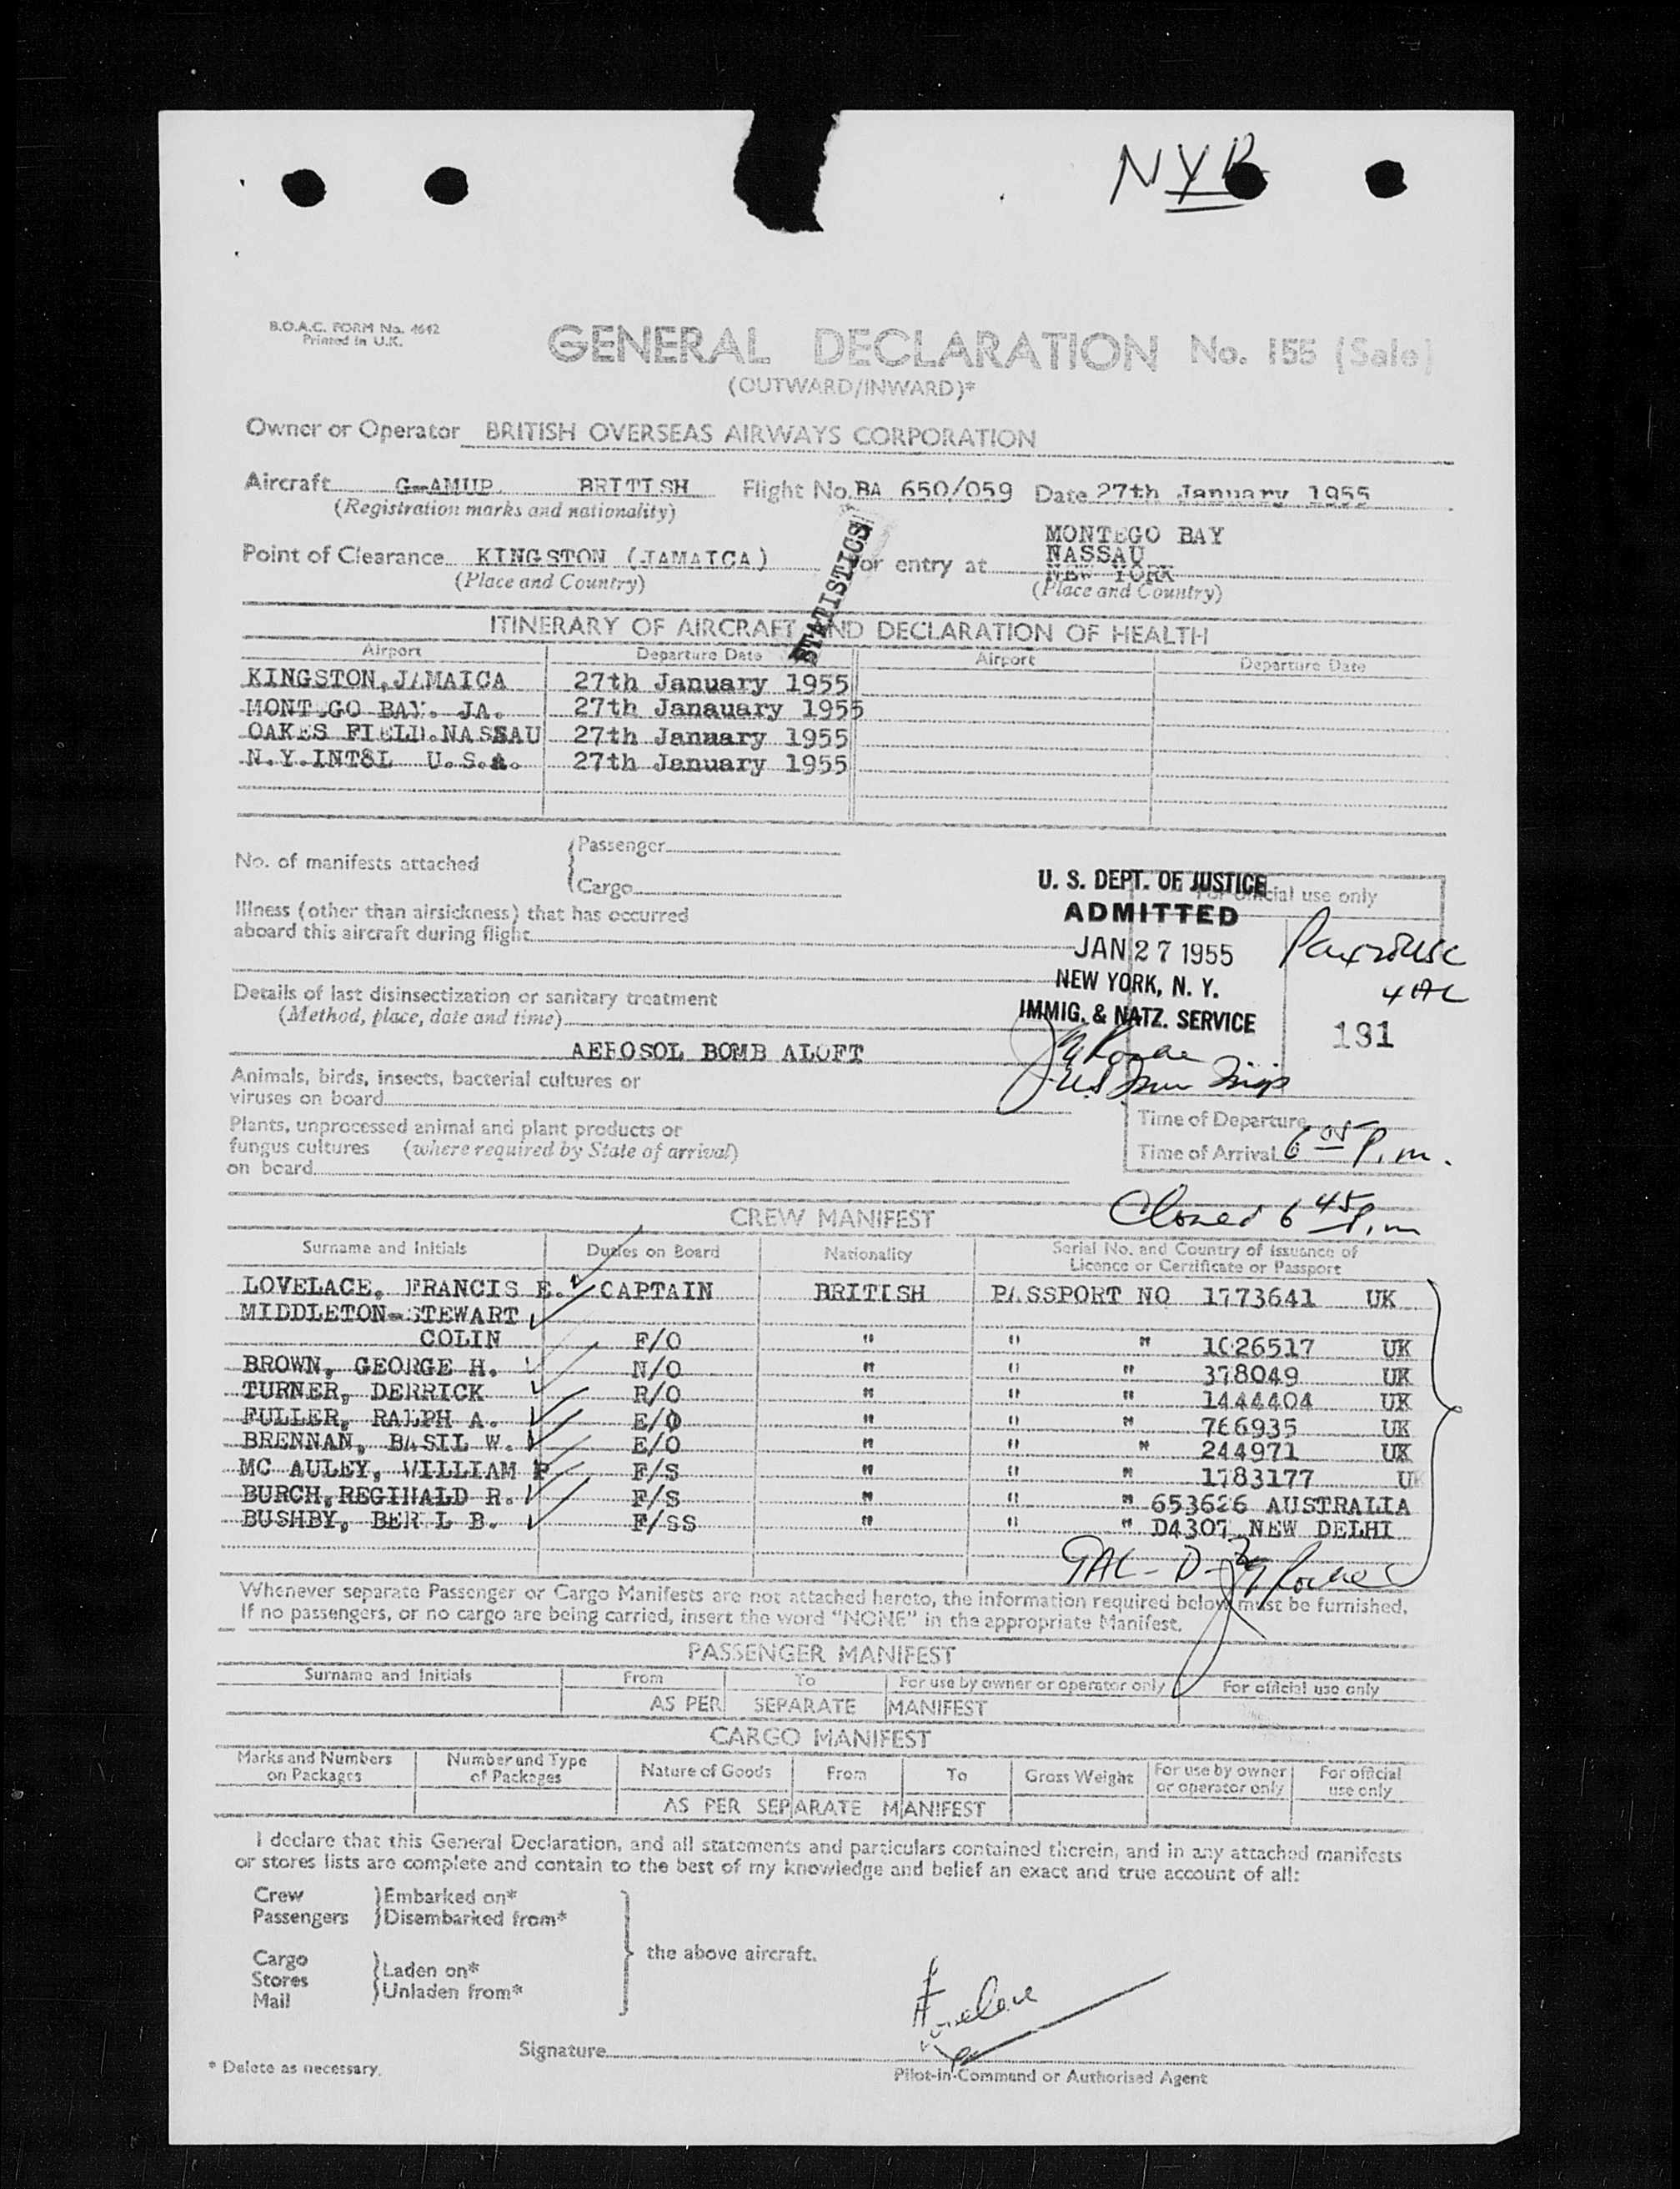 NYB
B.O.A.C. FORM No. 4642
Printed in U.K.
GENERAL DECLARATION No. 155 (Sale)
(OUTWARD/INWARD)*
Owner or Operator BRITISH OVERSEAS AIRWAYS CORPORATION
Aircraft G-AMUP. BRITISH Flight No. BA 650/059 Date 27th January 1955
(Registration marks and nationality)
STATISTICS
MONTEGO BAY
Point of Clearance KINGSTON (JAMAICA) For entry at NASSAU
NEW YORK
(Place and Country) (Place and Country)
ITINERARY OF AIRCRAFT AND DECLARATION OF HEALTH
Airport Departure Date Airport Departure Date
KINGSTON, JAMAICA 27th January 1955
MONTEGO BAY. JA. 27th Janauary 1955
OAKES FIELD.NASSAU 27th January 1955
N.Y.INT&L U.S.A. 27th January 1955
No. of manifests attached { Passenger
Cargo
For official use only
U. S. DEPT. OF JUSTICE
ADMITTED
JAN 27 1955
NEW YORK, N. Y.
IMMIG. & NATZ. SERVICE
4 AL
191
Illness (other than airsickness) that has occurred
aboard this aircraft during flight
Details of last disinsectization or sanitary treatment
(Method, place, date and time)
AEROSOL BOMB ALOFT
Animals, birds, insects, bacterial cultures or
viruses on board
Plants, unprocessed animal and plant products or
fungus cultures (where required by State of arrival)
on board
Time of Departure
Time of Arrival 6 05 P.m.
Closed 6 45 P.m
CREW MANIFEST
Surname and Initials Duties on Board Nationality Serial No. and Country of Issuance of
Licence or Certificate or Passport
LOVELACE, FRANCIS E. CAPTAIN BRITISH PASSPORT NO 1773641 UK
MIDDLETON-STEWART
COLIN F/O " " " 1026517 UK
BROWN, GEORGE H. N/O " " " 378049 UK
TURNER, DERRICK R/O " " " 1444404 UK
FULLER, RALPH A. E/O " " " 766935 UK
BRENNAN, BASIL W. E/O " " " 244971 UK
MC AULEY, WILLIAM P F/S " " " 1783177 UK
BURCH, REGINALD R. F/S " " " 653626 AUSTRALIA
BUSHBY, BERYL B. F/SS " " " D4307 NEW DELHI
9AL-D-3
Whenever separate Passenger or Cargo Manifests are not attached hereto, the information required below must be furnished.
If no passengers, or no cargo are being carried, insert the word "NONE" in the appropriate Manifest.
PASSENGER MANIFEST
Surname and Initials From To For use by owner or operator only For official use only
AS PER SEPARATE MANIFEST
CARGO MANIFEST
Marks and Numbers on Packages Number and Type of Packages Nature of Goods From To Gross Weight For use by owner or operator only For official use only
AS PER SEPARATE MANIFEST
I declare that this General Declaration, and all statements and particulars contained therein, and in any attached manifests
or stores lists are complete and contain to the best of my knowledge and belief an exact and true account of all:
Crew } Embarked on*
Passengers } Disembarked from*
the above aircraft.
Cargo
Stores } Laden on*
Mail } Unladen from*
Signature
Pilot-in-Command or Authorised Agent
* Delete as necessary.